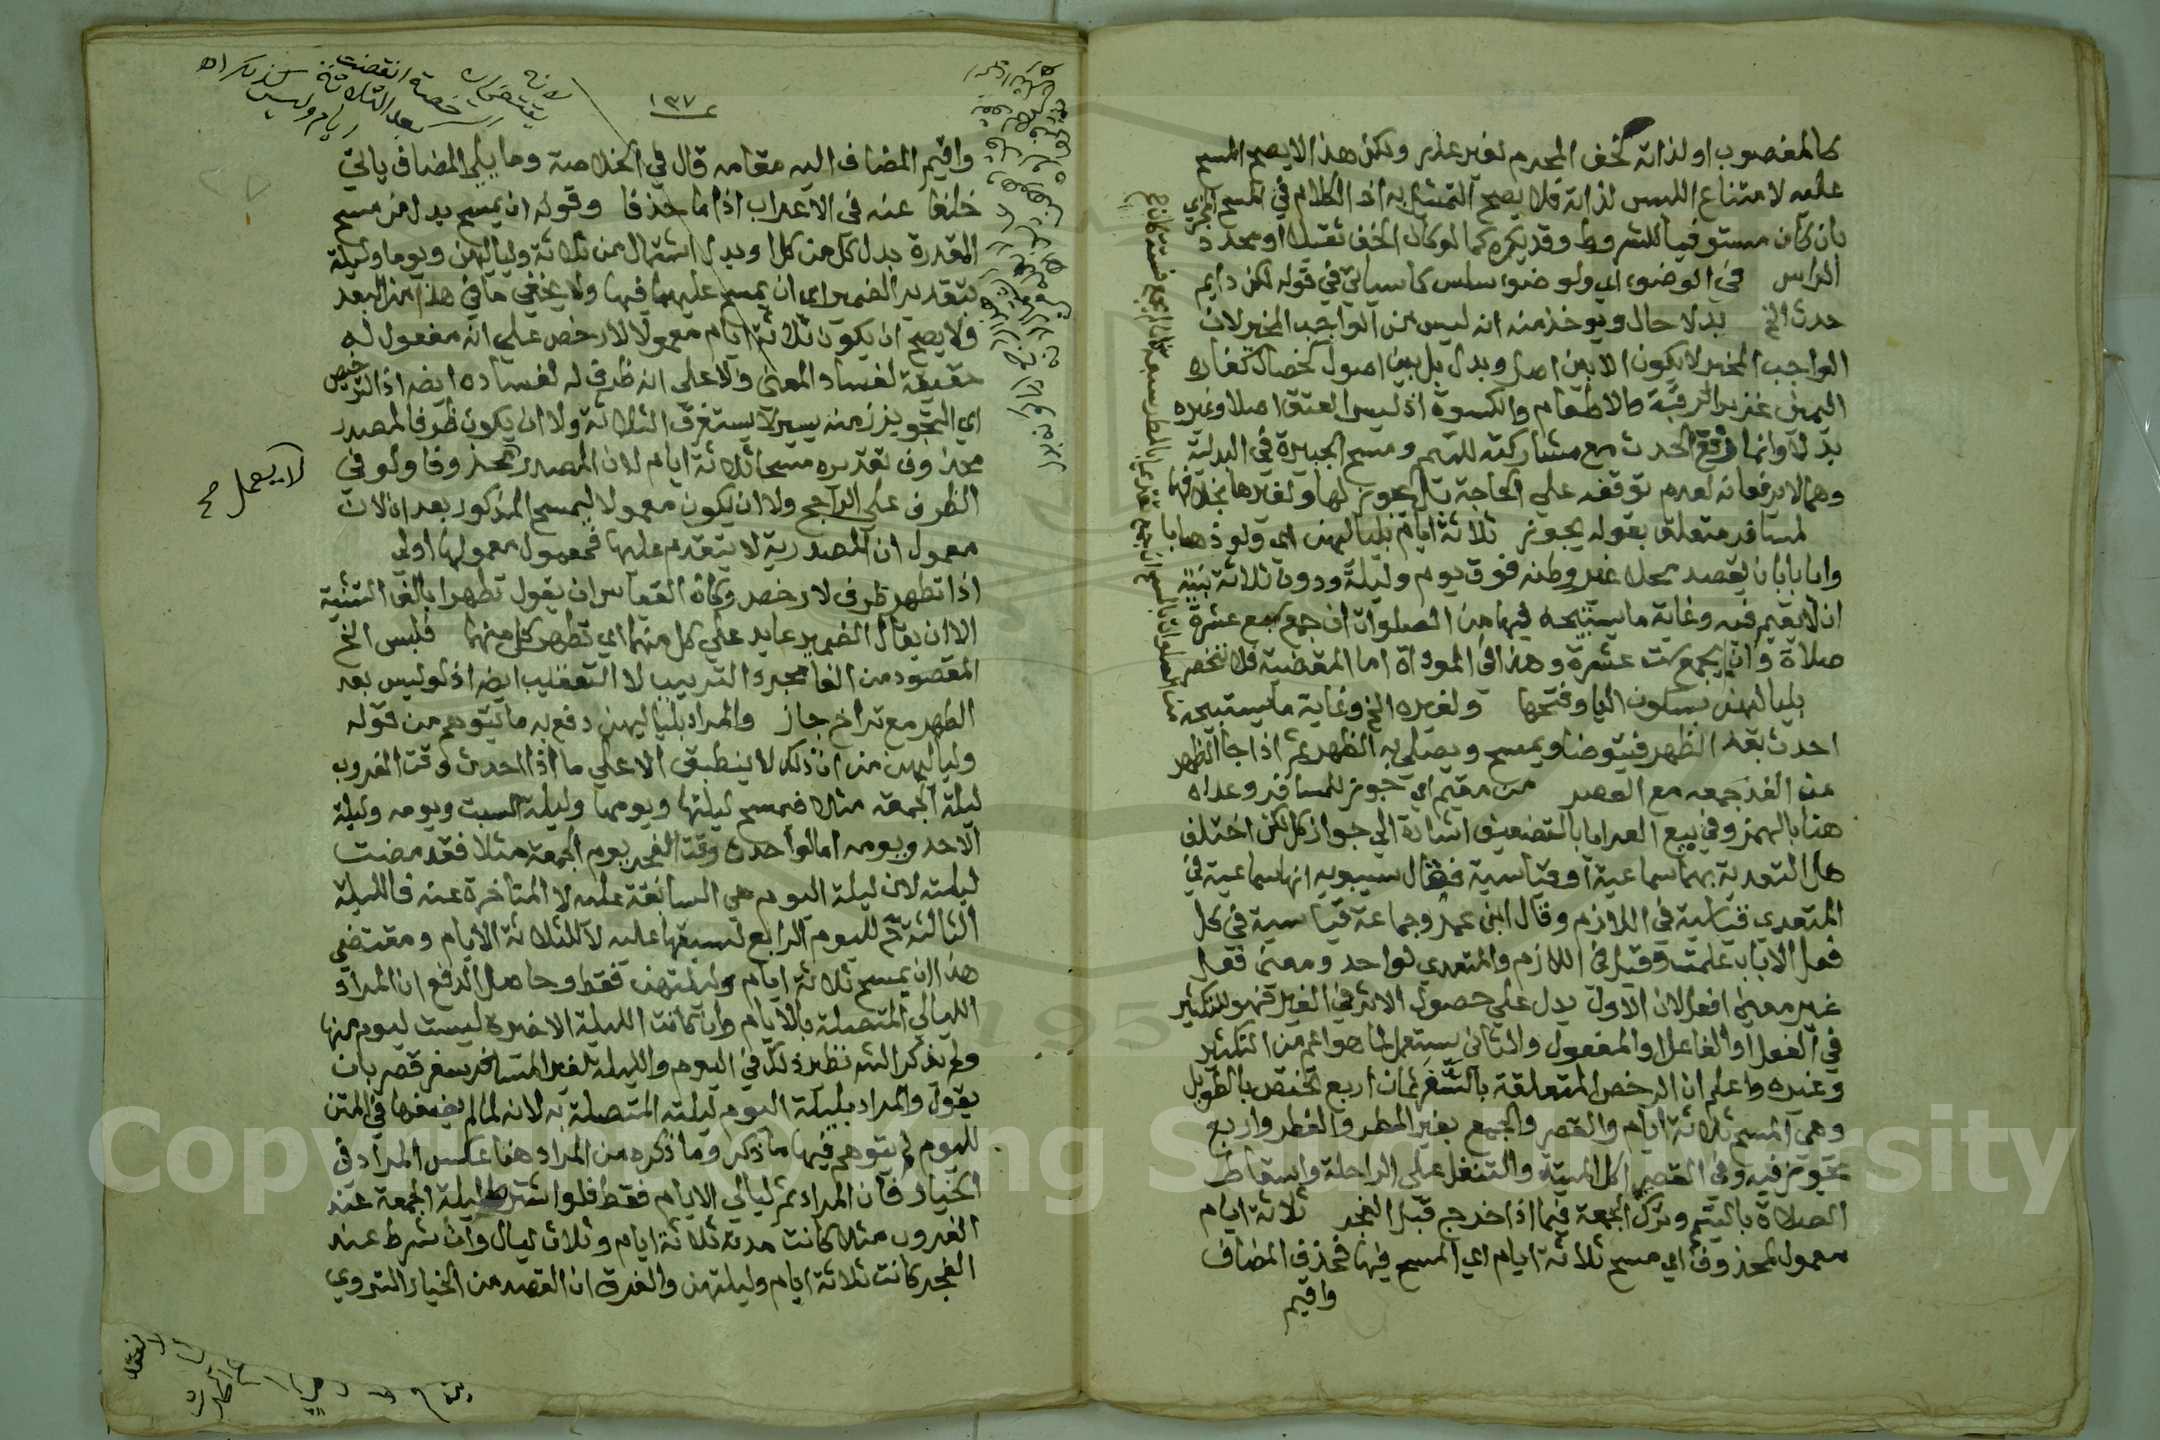 كالمغصوب او لذاته كخف المحرم لغير عذر ولكن هذا لا يصح المسح
عليه لامتناع اللبس لذاته فلا يصح التمثيل به اذ الكلام في المسح المجزي
بان كان مستوفيا للشروط وقد يكره كما لو كان الخف ثقيلا او محدد
الراس في الوضوء اي ولو وضوء سلس كما سياتي في قوله لكن دايم
حدث الخ بدلا حال ويوخذ منه انه ليس من الواجب المخير لان
الواجب المخير لا يكون الا بين اصل وبدل بل بين اصول كخصال كفارة
اليمين غير الرقبة والاطعام والكسوة اذ ليس العتق اصلا وغيره
بدلا وانما رفع الحدث مع مشاركته للتيمم ومسح الجبيرة في البدلية
وهما لا يرفعانه لعدم توقفه على الحاجة بل يجوز لها ولغيرها بخلافهما
لمسافر متعلق بقوله يجوز ثلاثة ايام بلياليهن اي ولو ذهابا
وايابا بان يقصد محلا غير وطنه فوق يوم وليلة ودون ثلاثة بنية
ان لا يقيم فيه وغاية ما يستبيحه فيها من الصلوات ان جمع سبع عشرة
صلاة وان لم يجمع ست عشرة وهذا في المؤداة اما المقضية فلا تنحصر
بلياليهن بسكون اليا وفتحها ولغيره الخ وغاية ما يستبيحه
احدث بعد الظهر فيتوضا ويمسح ويصلي به الظهر ثم اذا جا الظهر
من الغد جمعه مع العصر من مقيم اي جوز للمسافر وعداه
هنا بالهمز وفي بيع العرايا بالتضعيف اشارة الي جواز كل لكن اختلف
هل التعدية بهما سماعية او قياسية فقال سيبويه انها سماعية في
المتعدي قياسية في اللازم وقال ابن عمرو وجماعة قياسية في كل
فعل الا باب علمت وقيل في اللازم والمتعدي لواحد ومعنى فعل
غير معنى افعل لان الاول يدل على حصول الاثر في الغير فهو للتكثير
في الفعل او الفاعل او المفعول والثاني يستعمل لما هو اعم من التكثير
وغيره واعلم ان الرخص المتعلقة بالسفر ثمان اربع تختص بالطويل
وهي المسح ثلاثة ايام والقصر والجمع بغير المطر والفطر واربع
تجوز فيه وفي القصير اكل الميتة والتنفل على الراحلة واسقاط
الصلاة بالتيمم وترك الجمعة فيما اذا خرج قبل الفجر ثلاثة ايام
معمول لمحذوف اي مسح ثلاثة ايام اي المسح فيها فحذف المضاف
واقيم
١٣٧
واقيم المضاف اليه مقامه قال في الخلاصة وما يلي المضاف ياتي
خلفا عنه في الاعراب اذا ما حذفا وقوله ان يمسح بدل من مسح
المقدرة بدل كل من كل او بدل اشتمال من ثلاثة ولياليهن ويوما وليلة
بتقدير الضمير اي ان يمسح عليهما فيها ولا يخفى ما في هذا من البعد
ولا يصح ان يكون ثلاثة ايام معمولا لارخص علي انه مفعول له
حقيقة لفساد المعنى ولا على انه ظرف له لفساده ايضا اذ الترخيص
اي التجويز زمنه يسير لا يستغرق الثلاثة ولا ان يكون ظرفا لمصدر
محذوف تقديره مسحا ثلاثة ايام لان المصدر محذوفا ولو في
الظرف على الراجح ولا ان يكون معمولا ليمسح المذكور بعد ان لان
لا يعمل صح
معمول ان المصدرية لا يتقدم عليها فمعمول معمولها اولى
اذا تطهر ظرف لارخص وكان القياس ان يقول تطهرا بالف التثنية
الا ان يقال الضمير عايد علي كل منهما اي تطهر كل منهما فلبس الخ
المقصود من الفا مجرد الترتيب لا التعقيب ايضا اذ لو لبس بعد
الطهر مع تراخ جاز والمراد بلياليهن دفع به ما يتوهم من قوله
ولياليهن من ان ذلك لا ينطبق الا على ما اذا احدث وقت الغروب
ليلة الجمعة مثلا فيمسح ليلتها ويومها وليلة السبت ويومه وليلة
الاحد ويومه اما لو احدث وقت الفجر يوم الجمعة مثلا فقد مضت
ليلته لان ليلة اليوم هي السابقة عليه لا المتاخرة عنه فالليلة
الثالثة ح لليوم الرابع لسبقها عليه لا للثلاثة الايام ومقتضي
هذا ان يمسح ثلاثة ايام وليلتين فقط وحاصل الدفع ان المراد
الليالي المتصلة بالايام وان كانت الليلة الاخيرة ليست ليوم منها
ولم يذكر الش نظير ذلك في اليوم والليلة لغير المسافر سفر قصر بان
يقول والمراد بليلة اليوم ليلته المتصلة به لانه لما لم يضفها في المتن
لليوم لم يتوهم فيها ما ذكر وما ذكره من المراد هنا عكس المراد في
الخيار فان المراد ثم ليالي الايام فقط فلو اشترط ليلة الجمعة عند
الغروب مثلا كانت مدته ثلاثة ايام وثلاث ليال وان شرط عند
الفجر كانت ثلاثة ايام وليلتين والفرق ان القصد من الخيار التروي
Copyright © King Saud University